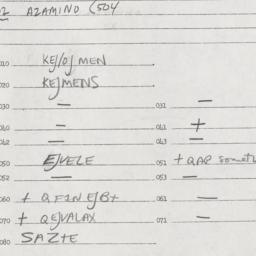 AZAMINO (504
010 KEJ/OJ MEN
020 KEJMENS
030 — 031 —
040 — 041 +
042 — 043 —
050 EJVELE 051 + QAP
052 — 053 —
060 + QFIN EJB+ 061 —
070 + QEJVALAX 071 —
080 SAZTE